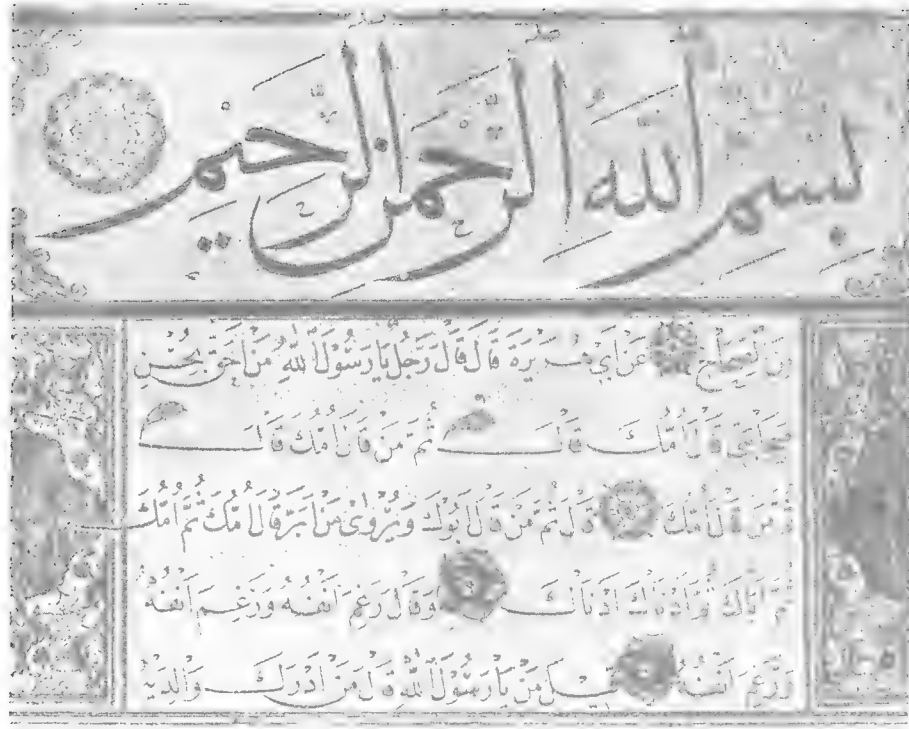 بسم الله الرحمن الرحيم
من الصحاح عن ابي هريرة قال قال رجل يا رسول الله من احق بحسن
صحابتي قال امك قال ثم من قال امك قال
ثم من قال امك قال ثم من قال ابوك ويروى من ابر قال امك ثم امك
ثم اباك ثم ادناك ادناك وقال رغم انفه ورغم انفه
ورغم انفه قيل من يا رسول الله قال من ادرك والديه